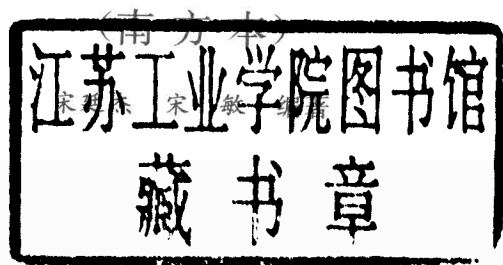 (南方本)
江苏工业学院图书馆
宋 杰 宋 敏 编著
藏书章